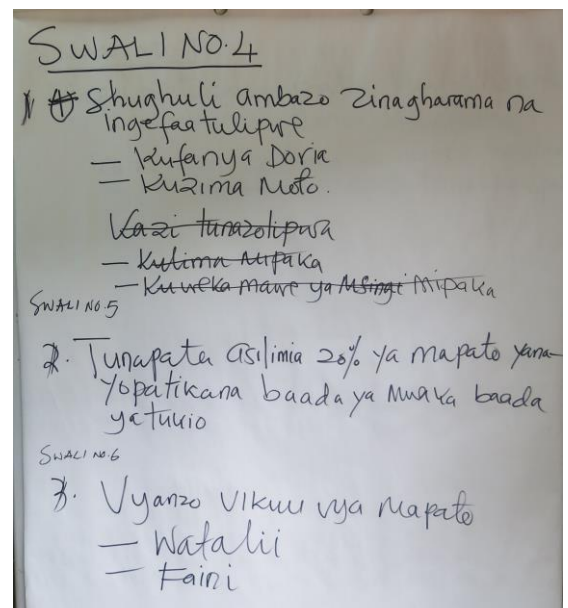 SWALI NO.4
Shughuli ambazo zinagharama na
ingefaa tulipwe
— Kufanya Doria
— Kuzima Moto.
Kazi tunazolipwa
— Kulima Mipaka
— Kuweka mawe ya Msingi Mipaka
SWALI NO.5
2. Tunapata asilimia 20% ya mapato yana-
yopatikana baada ya Mwaka baada
ya tukio
SWALI NO.6
3. Vyanzo vikuu vya Mapato
— Watalii
— Faini